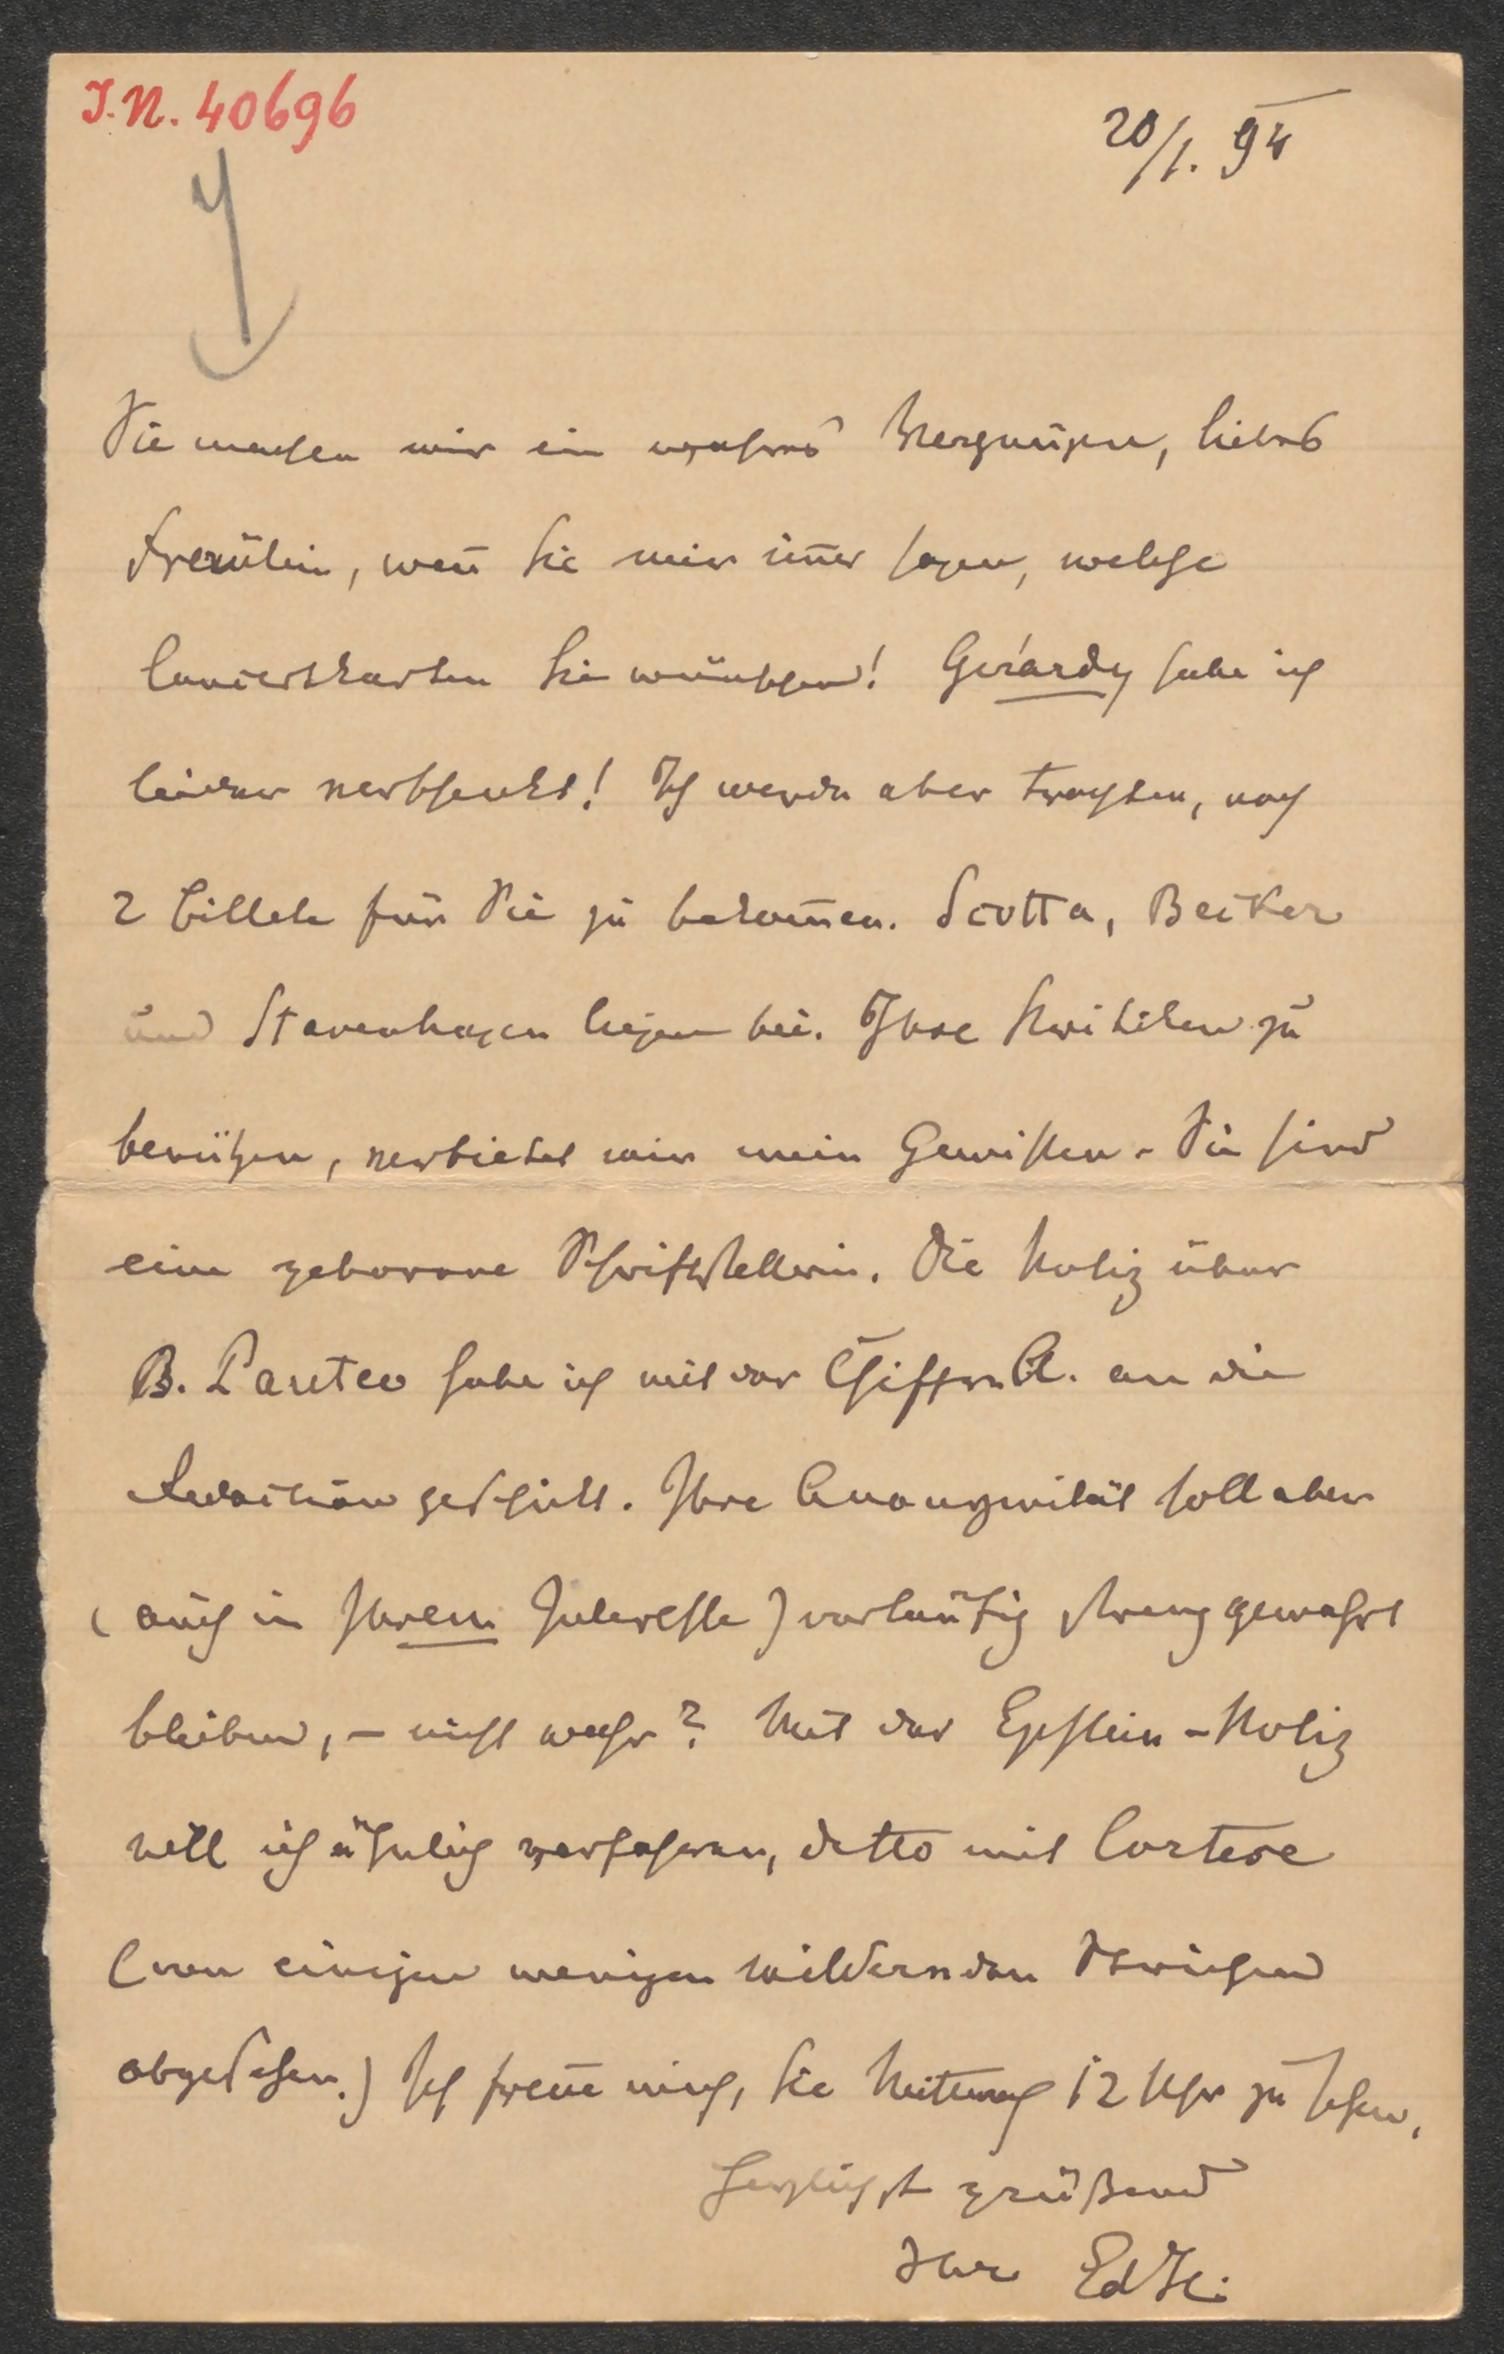 J.N. 40696
20/1. 94
Sie machen mir ein wahres Vergnügen, liebes
Fräulein, weñ Sie mir im̃er sagen, welche
Concertkarten Sie wünschen! Gérardy habe ich
leider verschenkt! Ich werde aber trachten, noch
2 Billete für Sie zu bekom̃en. Scotta, Becker
und Stavenhagen liegen bei. Ihre Kritiken zu
benützen, verbietet mir mein Gewissen – Sie sind
eine geborene Schriftstellerin. Die Notiz über
B. Panteo habe ich mit der Chiffre A. an die
Redaction geschickt. Ihre Anonymität soll aber
(auch in Ihrem Interesse) vorläufig streng gewahrt
bleiben, – nicht wahr? Mit der Epstein-Notiz
will ich ähnlich verfahren, detto mit Cortese
(von einigen wenigen mildernden Strichen
abgesehen.) Ich freue mich, Sie Mittwoch 12 Uhr zu sehen,
herzlichst grüßend
Ihr EdH.